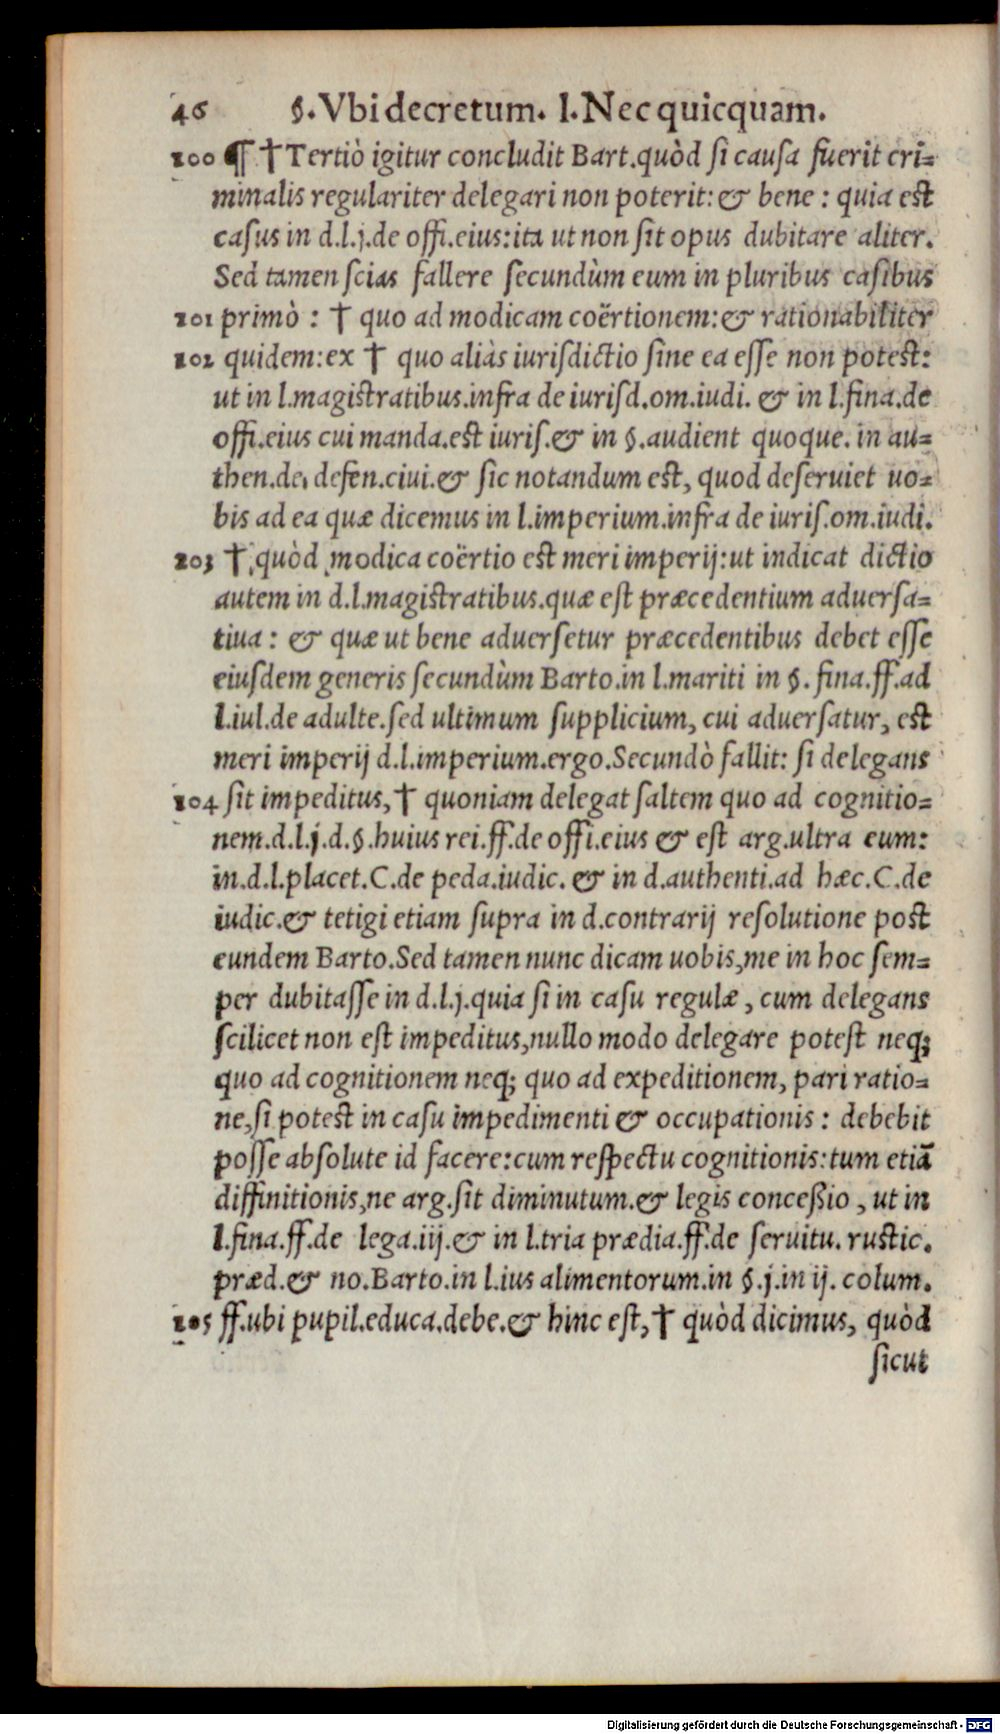 46 §. Vbi decretum. l. Nec quicquam.
200 ¶ † Tertiò igitur concludit Bart. quòd si causa fuerit cri-
minalis regulariter delegari non poterit: & bene : quia est
casus in d.l.j.de offi.eius: ita ut non sit opus dubitare aliter.
Sed tamen scias fallere secundùm eum in pluribus casibus
201 primò : † quo ad modicam coërtionem: & rationabiliter
202 quidem: ex † quo aliàs iurisdictio sine ea esse non potest:
ut in l.magistratibus.infra de iurisd.om.iudi. & in l.fina.de
offi.eius cui manda.est iuris.& in §.audient quoque. in au-
then.de defen.ciui.& sic notandum est, quod deseruiet uo-
bis ad ea quæ dicemus in l.imperium.infra de iuris.om.iudi.
203 † quòd modica coërtio est meri imperij: ut indicat dictio
autem in d.l.magistratibus.quæ est præcedentium aduersa-
tiua : & quæ ut bene aduersetur præcedentibus debet esse
eiusdem generis secundùm Barto.in l.mariti in §. fina.ff.ad
l.iul.de adulte.sed ultimum supplicium, cui aduersatur, est
meri imperij d.l.imperium.ergo.Secundò fallit: si delegans
204 sit impeditus, † quoniam delegat saltem quo ad cognitio-
nem.d.l.j.d.§.huius rei.ff.de offi.eius & est arg.ultra eum:
in.d.l.placet.C.de peda.iudic. & in d.authenti.ad hæc.C.de
iudic.& tetigi etiam supra in d.contrarij resolutione post
eundem Barto.Sed tamen nunc dicam uobis,me in hoc sem-
per dubitasse in d.l.j.quia si in casu regulæ , cum delegans
scilicet non est impeditus,nullo modo delegare potest neq;
quo ad cognitionem neq; quo ad expeditionem, pari ratio-
ne,si potest in casu impedimenti & occupationis : debebit
posse absolute id facere: cum respectu cognitionis: tum etiã
diffinitionis,ne arg.sit diminutum.& legis conceßio , ut in
l.fina.ff.de lega.iij.& in l.tria prædia.ff.de seruitu. rustic.
præd.& no.Barto.in l.ius alimentorum.in §.j.in ij. colum.
205 ff.ubi pupil.educa.debe.& hinc est, † quòd dicimus, quòd
sicut
Digitalisierung gefördert durch die Deutsche Forschungsgemeinschaft - DFG